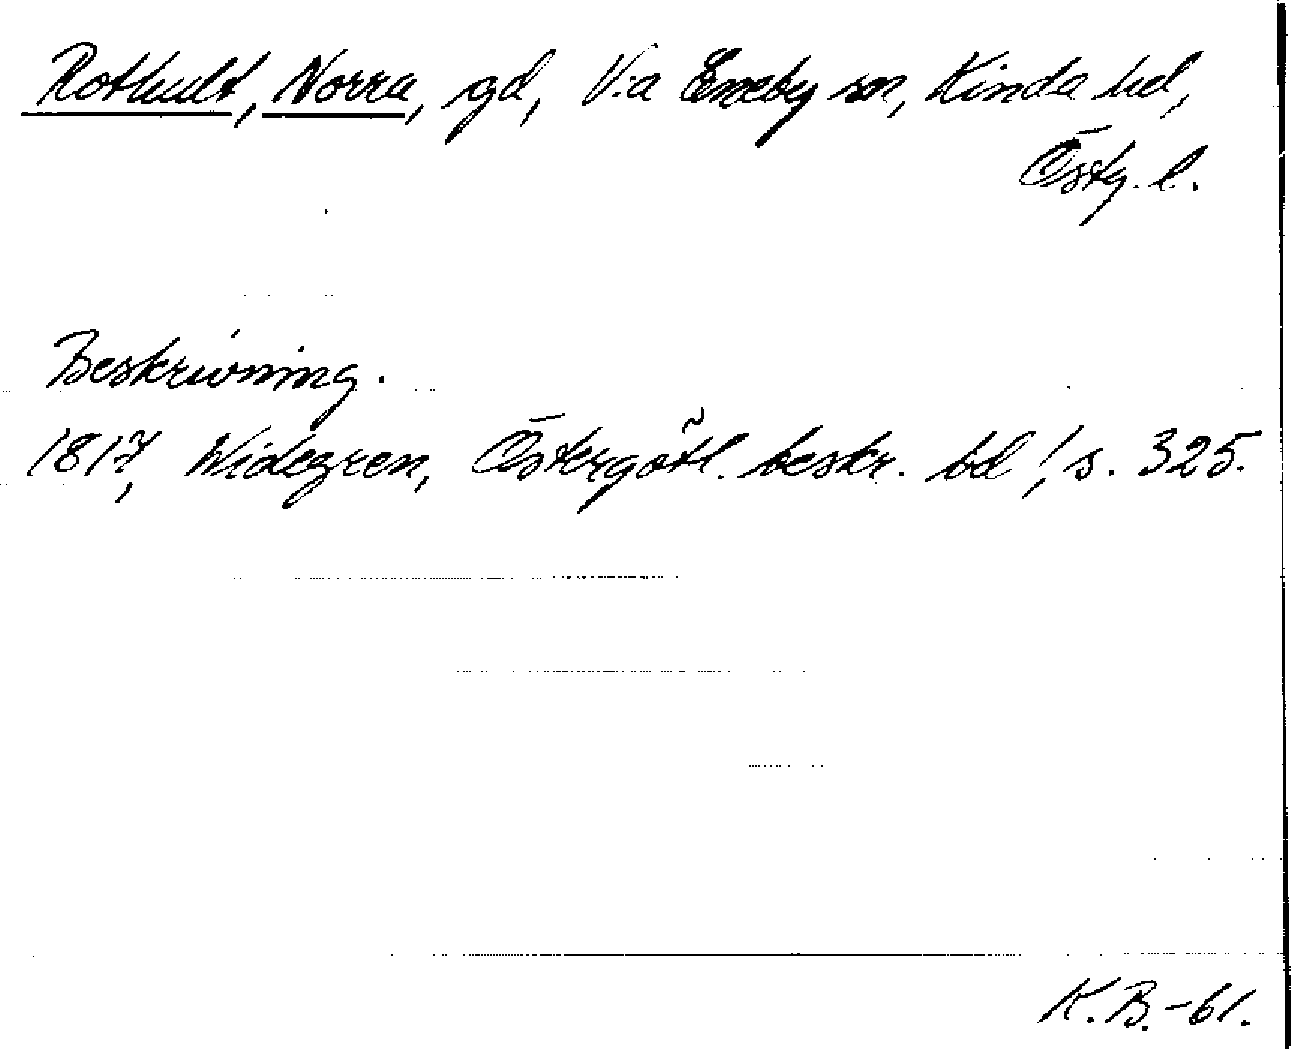 Rothult, Norra, gd, V:a Eneby sn, Kinda hd,
Östg. l.
Beskrivning.
1817, Widegren, Östergötl. beskr. bd 1, s. 325.
K.B.-61.